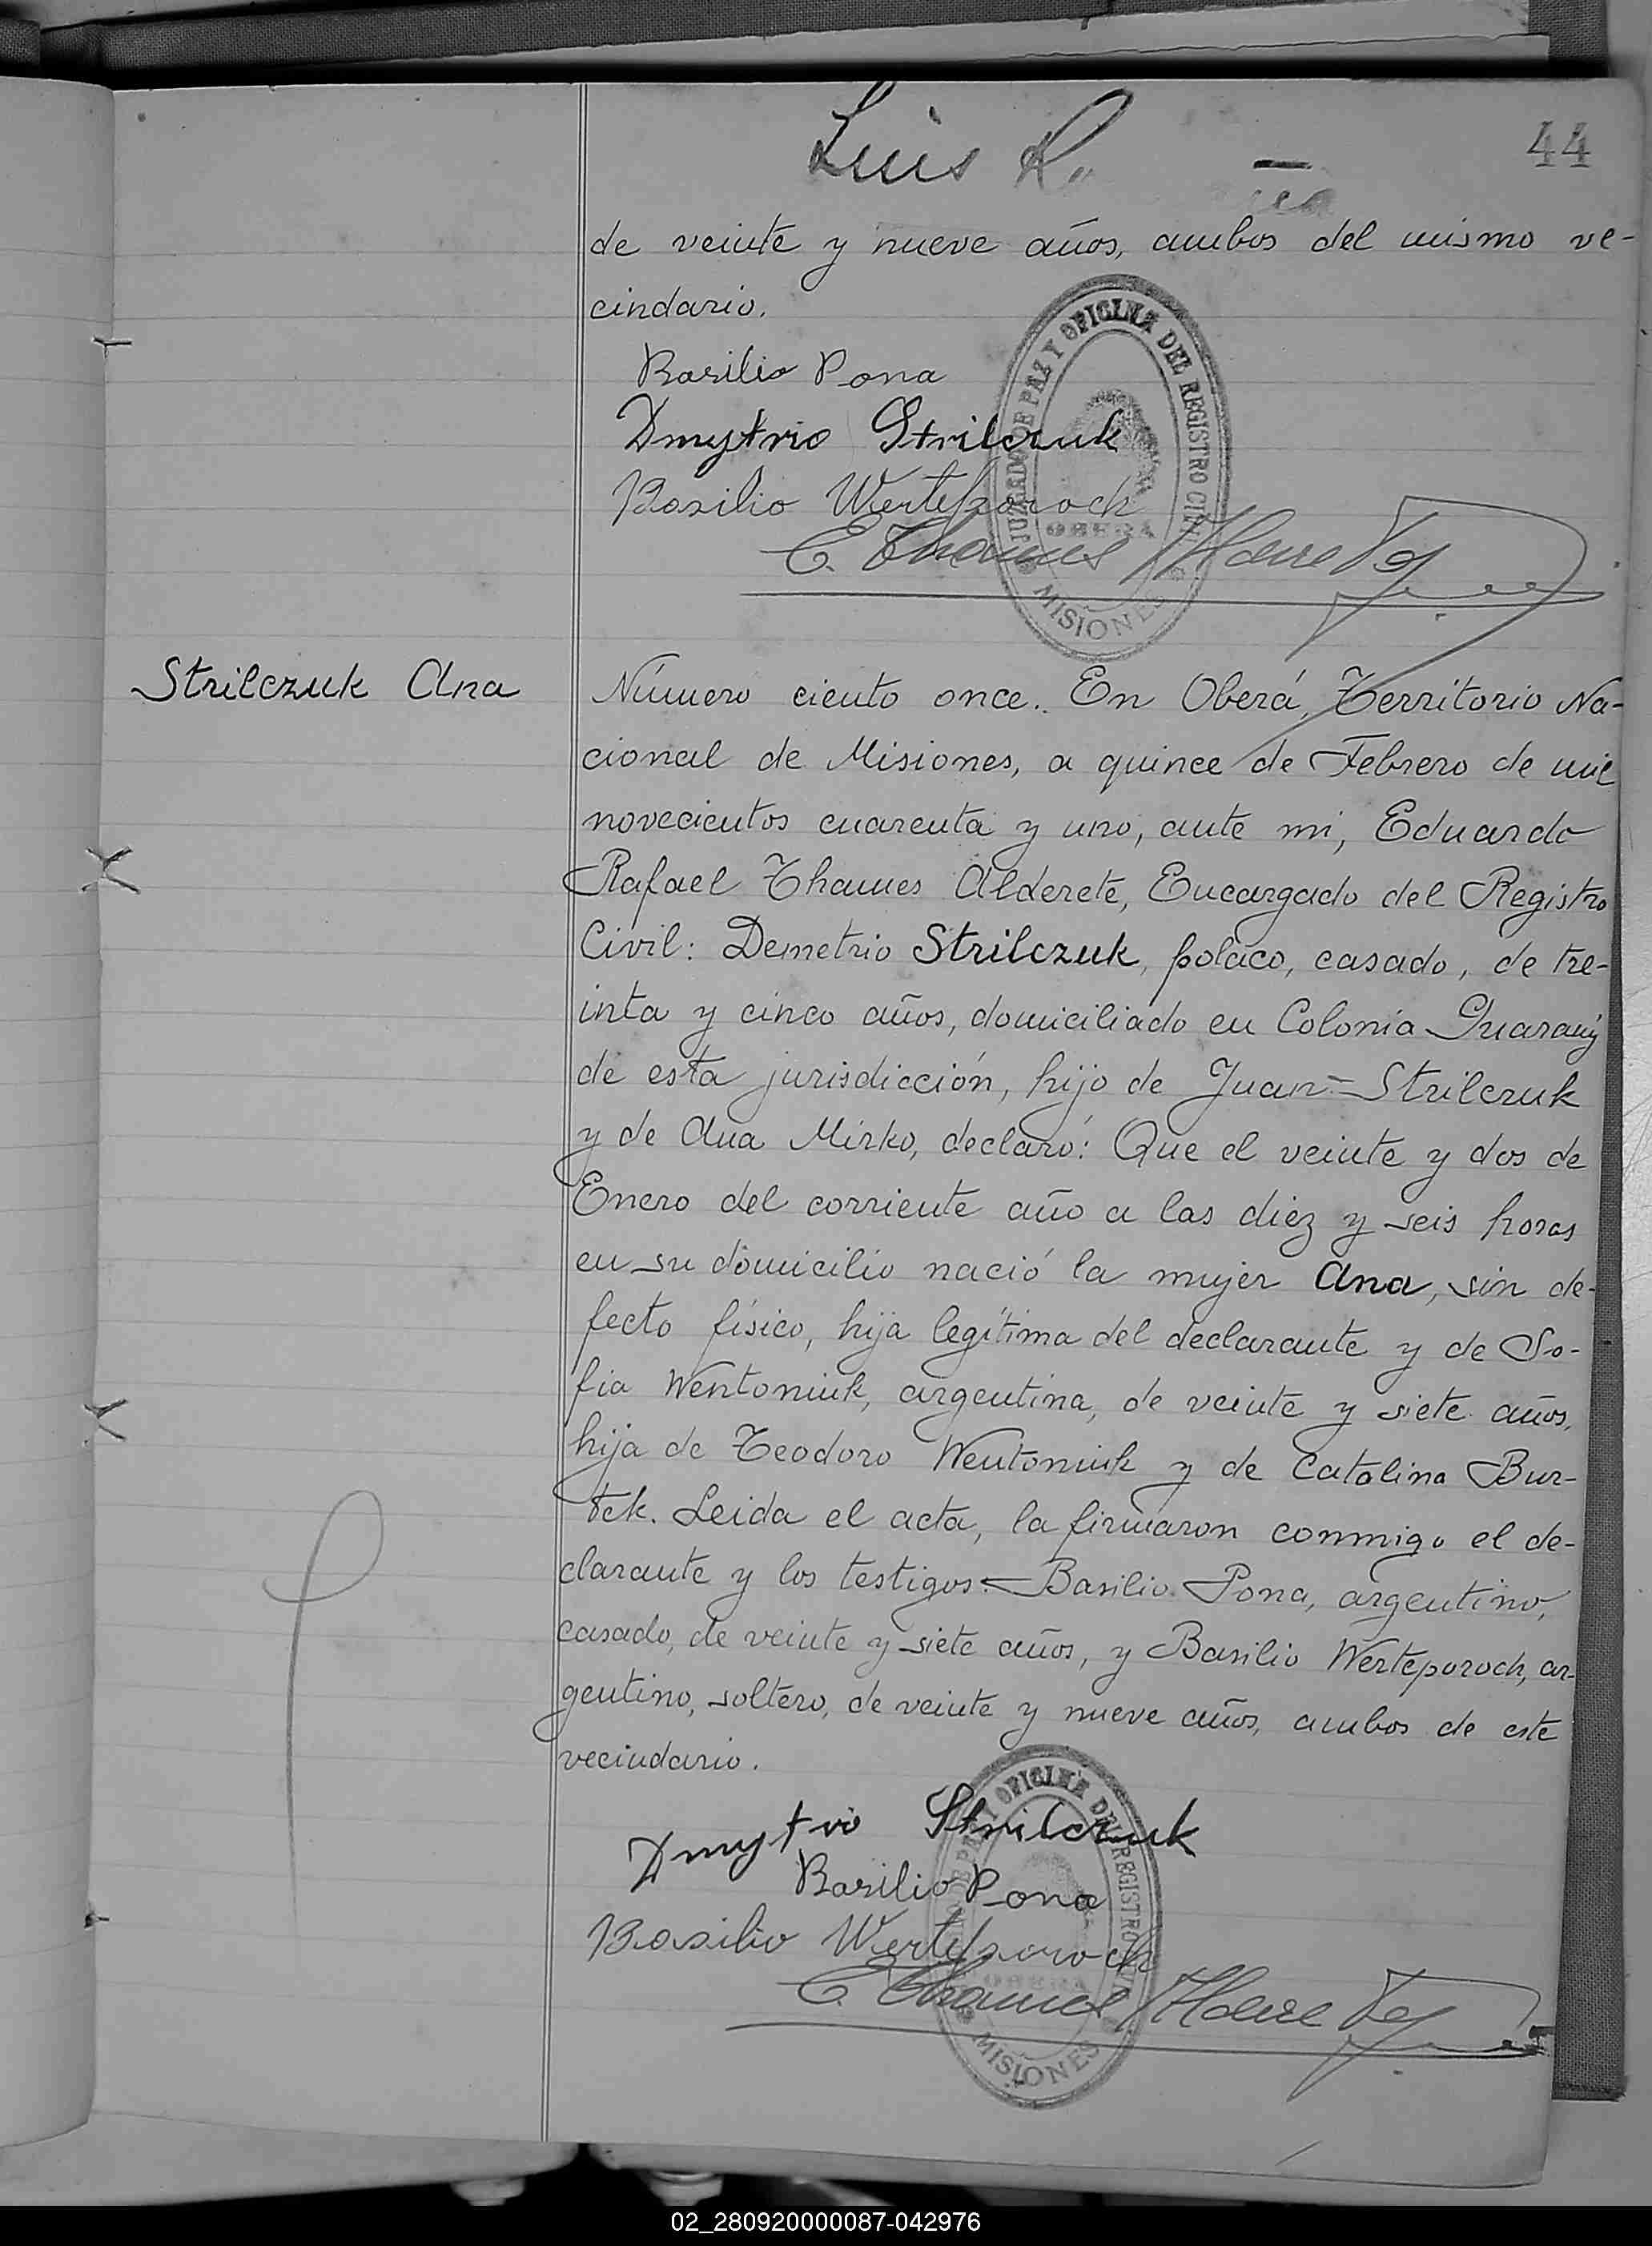 Luis
44
de veinte y nueve años, ambos del mismo ve-
cindario.
Basilio Pona
Dmytrio Strilczuk
Basilio Werteporoch
JUZGADO DE PAZ Y OFICINA DEL REGISTRO CIVIL
OBERA
MISIONES
E. Thames Alderete
Strilczuk Ana
Número ciento once. En Oberá, Territorio Na-
cional de Misiones, a quince de Febrero de mil
novecientos cuarenta y uno, ante mi, Eduardo
Rafael Thames Alderete, Encargado del Registro
Civil: Demetrio Strilczuk, polaco, casado, de tre-
inta y cinco años, domiciliado en Colonia Guaraný
de esta jurisdicción, hijo de Juan Strilczuk
y de Ana Mirko, declaró: Que el veinte y dos de
Enero del corriente año a las diez y seis horas
en su domicilio nació la mujer Ana, sin de-
fecto físico, hija legítima del declarante y de So-
fia Wentoniuk, argentina, de veinte y siete años,
hija de Teodoro Wentoniuk y de Catalina Bur-
tek. Leida el acta, la firmaron conmigo el de-
clarante y los testigos: Basilio Pona, argentino,
casado, de veinte y siete años, y Basilio Werteporoch, ar-
gentino, soltero, de veinte y nueve años, ambos de este
vecindario.
Dmytrio Strilczuk
Basilio Pona
Basilio Werteporoch
OFICINA DEL REGISTRO
OBERA
MISIONES
E. Thames Alderete
02_280920000087-042976